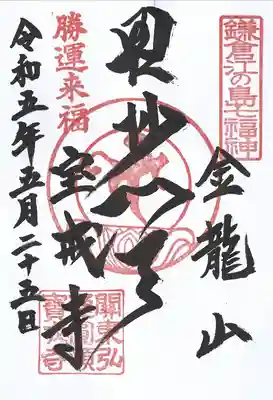 鎌倉江の島七福神
金龍山
毘沙門天
宝戒寺
勝運来福
令和五年五月二十五日
關東弘
圓頓
寶戒寺